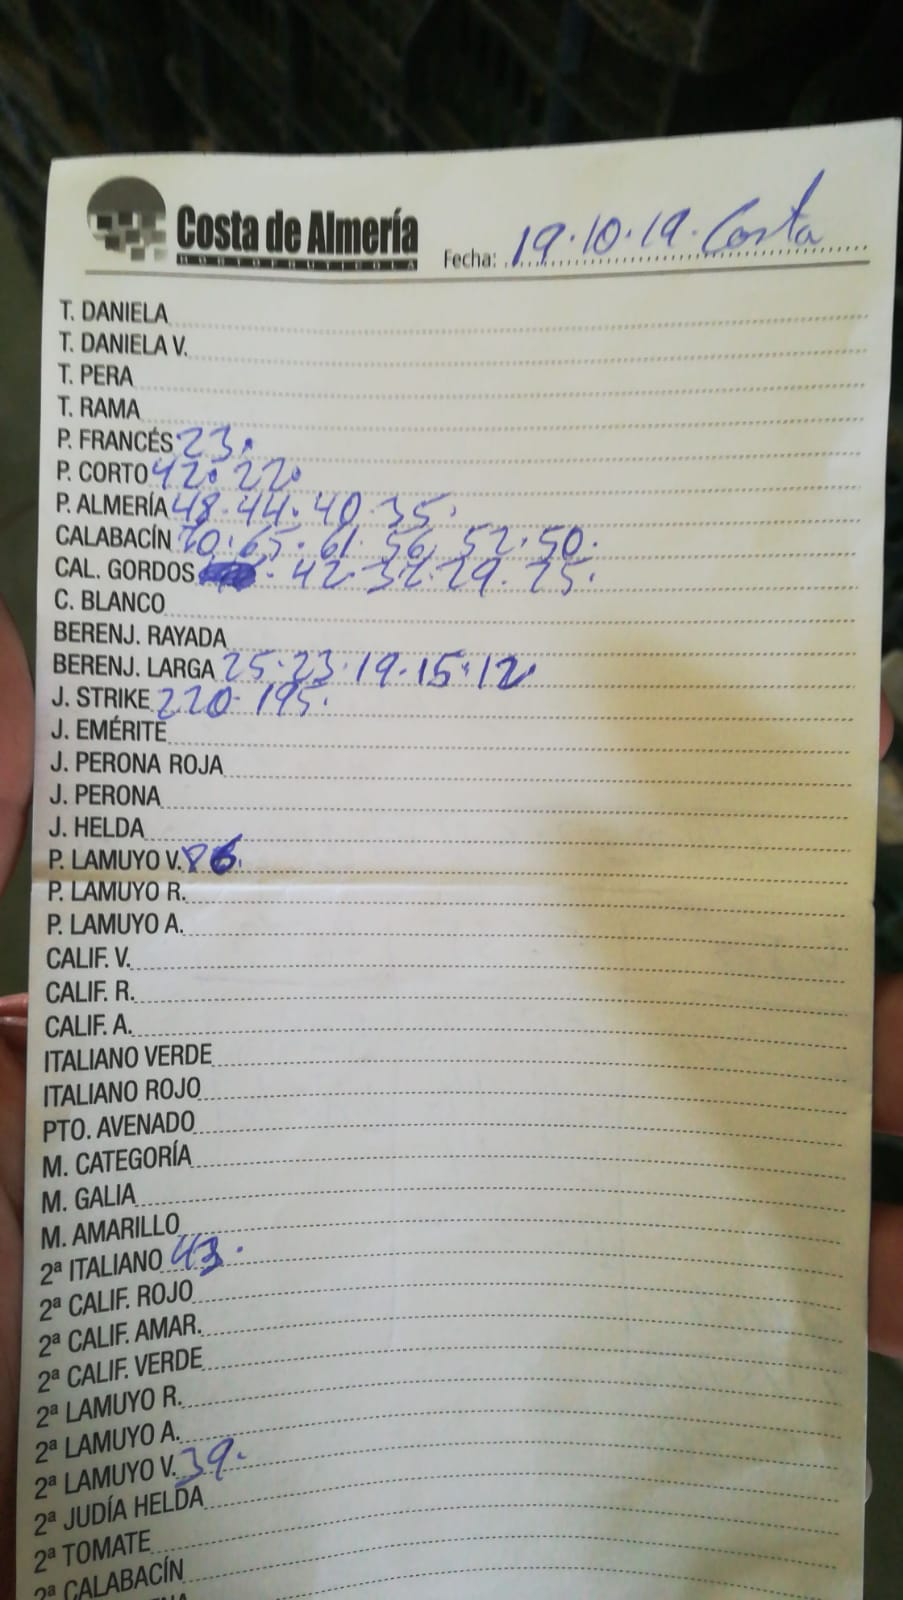 Costa de Almería
HORTOFRUTICOLA
Fecha: 19.10.19. Costa
T. DANIELA
T. DANIELA V.
T. PERA
T. RAMA
P. FRANCÉS 23.
P. CORTO 42. 22.
P. ALMERÍA 48. 44. 40. 35.
CALABACÍN 70. 65. 61. 56. 52. 50.
CAL. GORDOS . 42. 32. 29. 25.
C. BLANCO
BERENJ. RAYADA
BERENJ. LARGA 25. 23. 19. 15. 12.
J. STRIKE 220. 195.
J. EMÉRITE
J. PERONA ROJA
J. PERONA
J. HELDA
P. LAMUYO V. 86.
P. LAMUYO R.
P. LAMUYO A.
CALIF. V.
CALIF. R.
CALIF. A.
ITALIANO VERDE
ITALIANO ROJO
PTO. AVENADO
M. CATEGORÍA
M. GALIA
M. AMARILLO
2ª ITALIANO 43.
2ª CALIF. ROJO
2ª CALIF. AMAR.
2ª CALIF. VERDE
2ª LAMUYO R.
2ª LAMUYO A.
2ª LAMUYO V. 39.
2ª JUDÍA HELDA
2ª TOMATE
2ª CALABACÍN